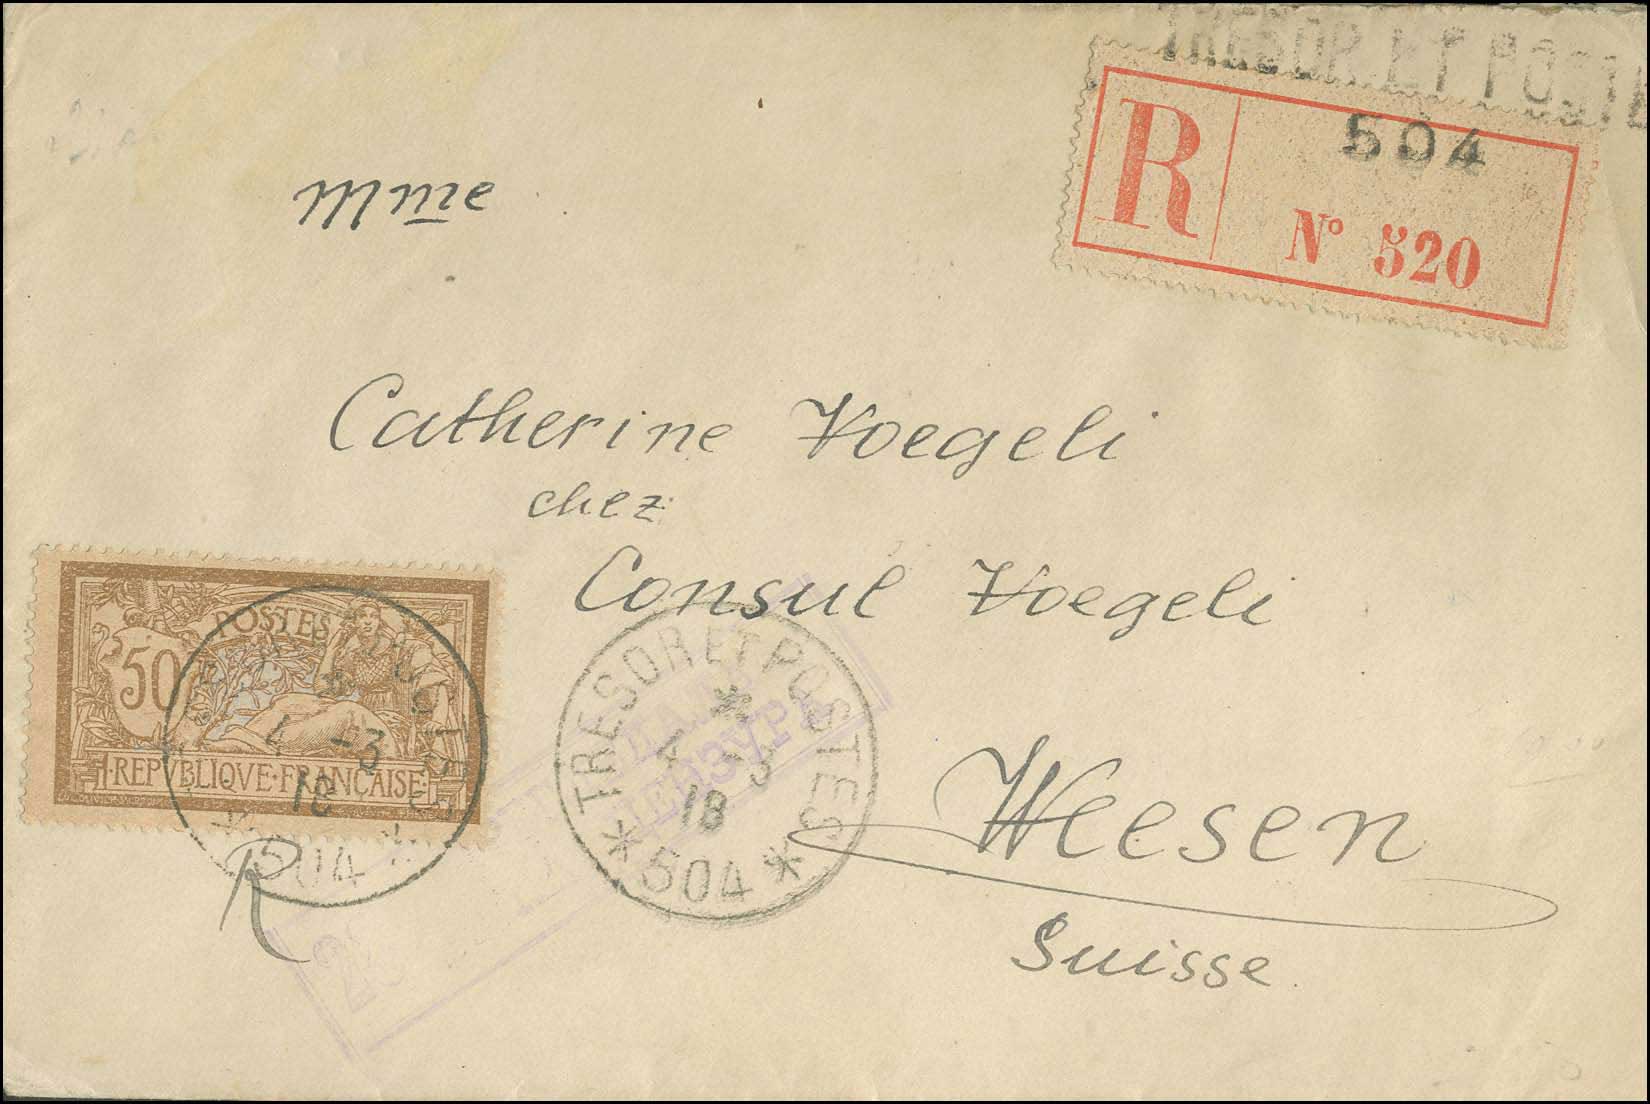 TRESOR ET POSTE
504
R
N° 520
Mme
Catherine Voegeli
chez
Consul Voegeli
Weesen
Suisse
POSTES
50
REPVBLIQVE FRANÇAISE
4 -3
18
504
R
TRESOR ET POSTES
4 -3
18
* 504 *
ЦЕНЗУРА